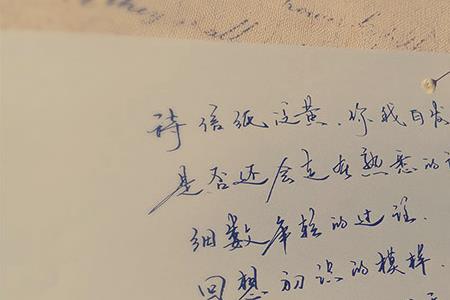 待信纸泛黄、你我白发
是否还会走在熟悉的
细数年轻的过往.
回想初识的模样.